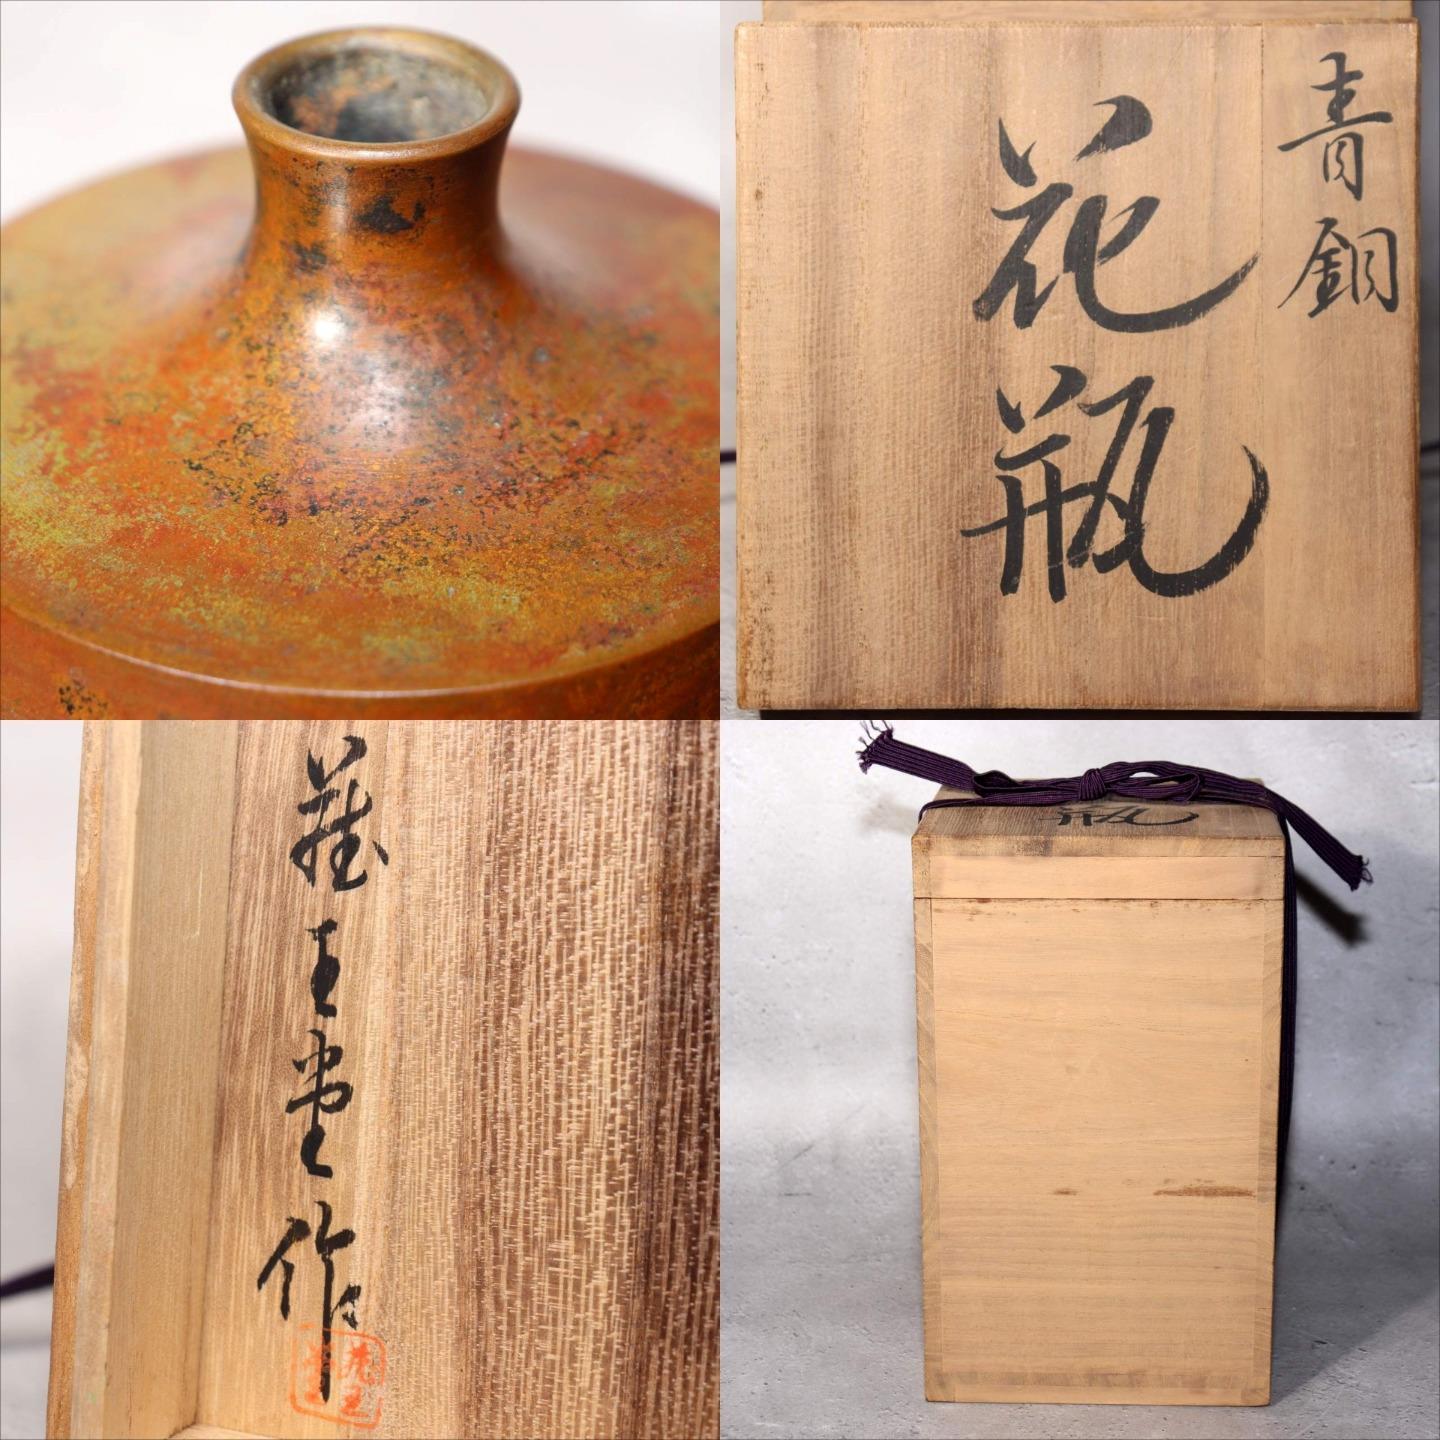 青銅
花瓶
蔵王堂作
瓶